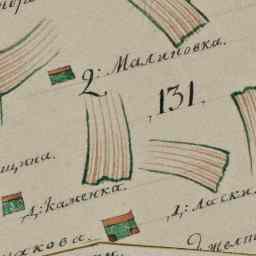 2: Малиновка.
131.
щина.
Д: Каменка.
Д: Ласки
чакова.
Д. Желт